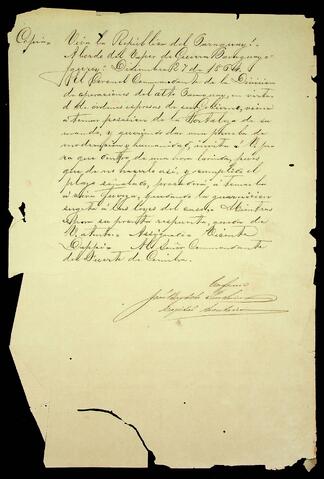 Copia = Viva la República del Paraguay! =
A bordo del Vapor de Guerra Paraguayo
Diciembre 27 de 1864 =
El Coronel Comandante de la Division
de operaciones del alto Paraguay, en virtud
de órdenes espresas de su Gobierno, viene
á tomar posesion de la Fortaleza de su
mando, y queriendo dar una prueba de
moderacion y humanidad, invita á V. pa
ra que dentro de una hora rinda, pues
que de no hacerlo así, y cumplido el
plazo señalado, procederá á tomarla
á viva fuerza, quedando la guarnicion
sugeta á las leyes del caso = Mientras
espera su pronta respuesta, queda de
V. atento = Assignado = Vicente
Barrios = Al Señor Commandante
del Fuerte de Coimbra.
Conforme